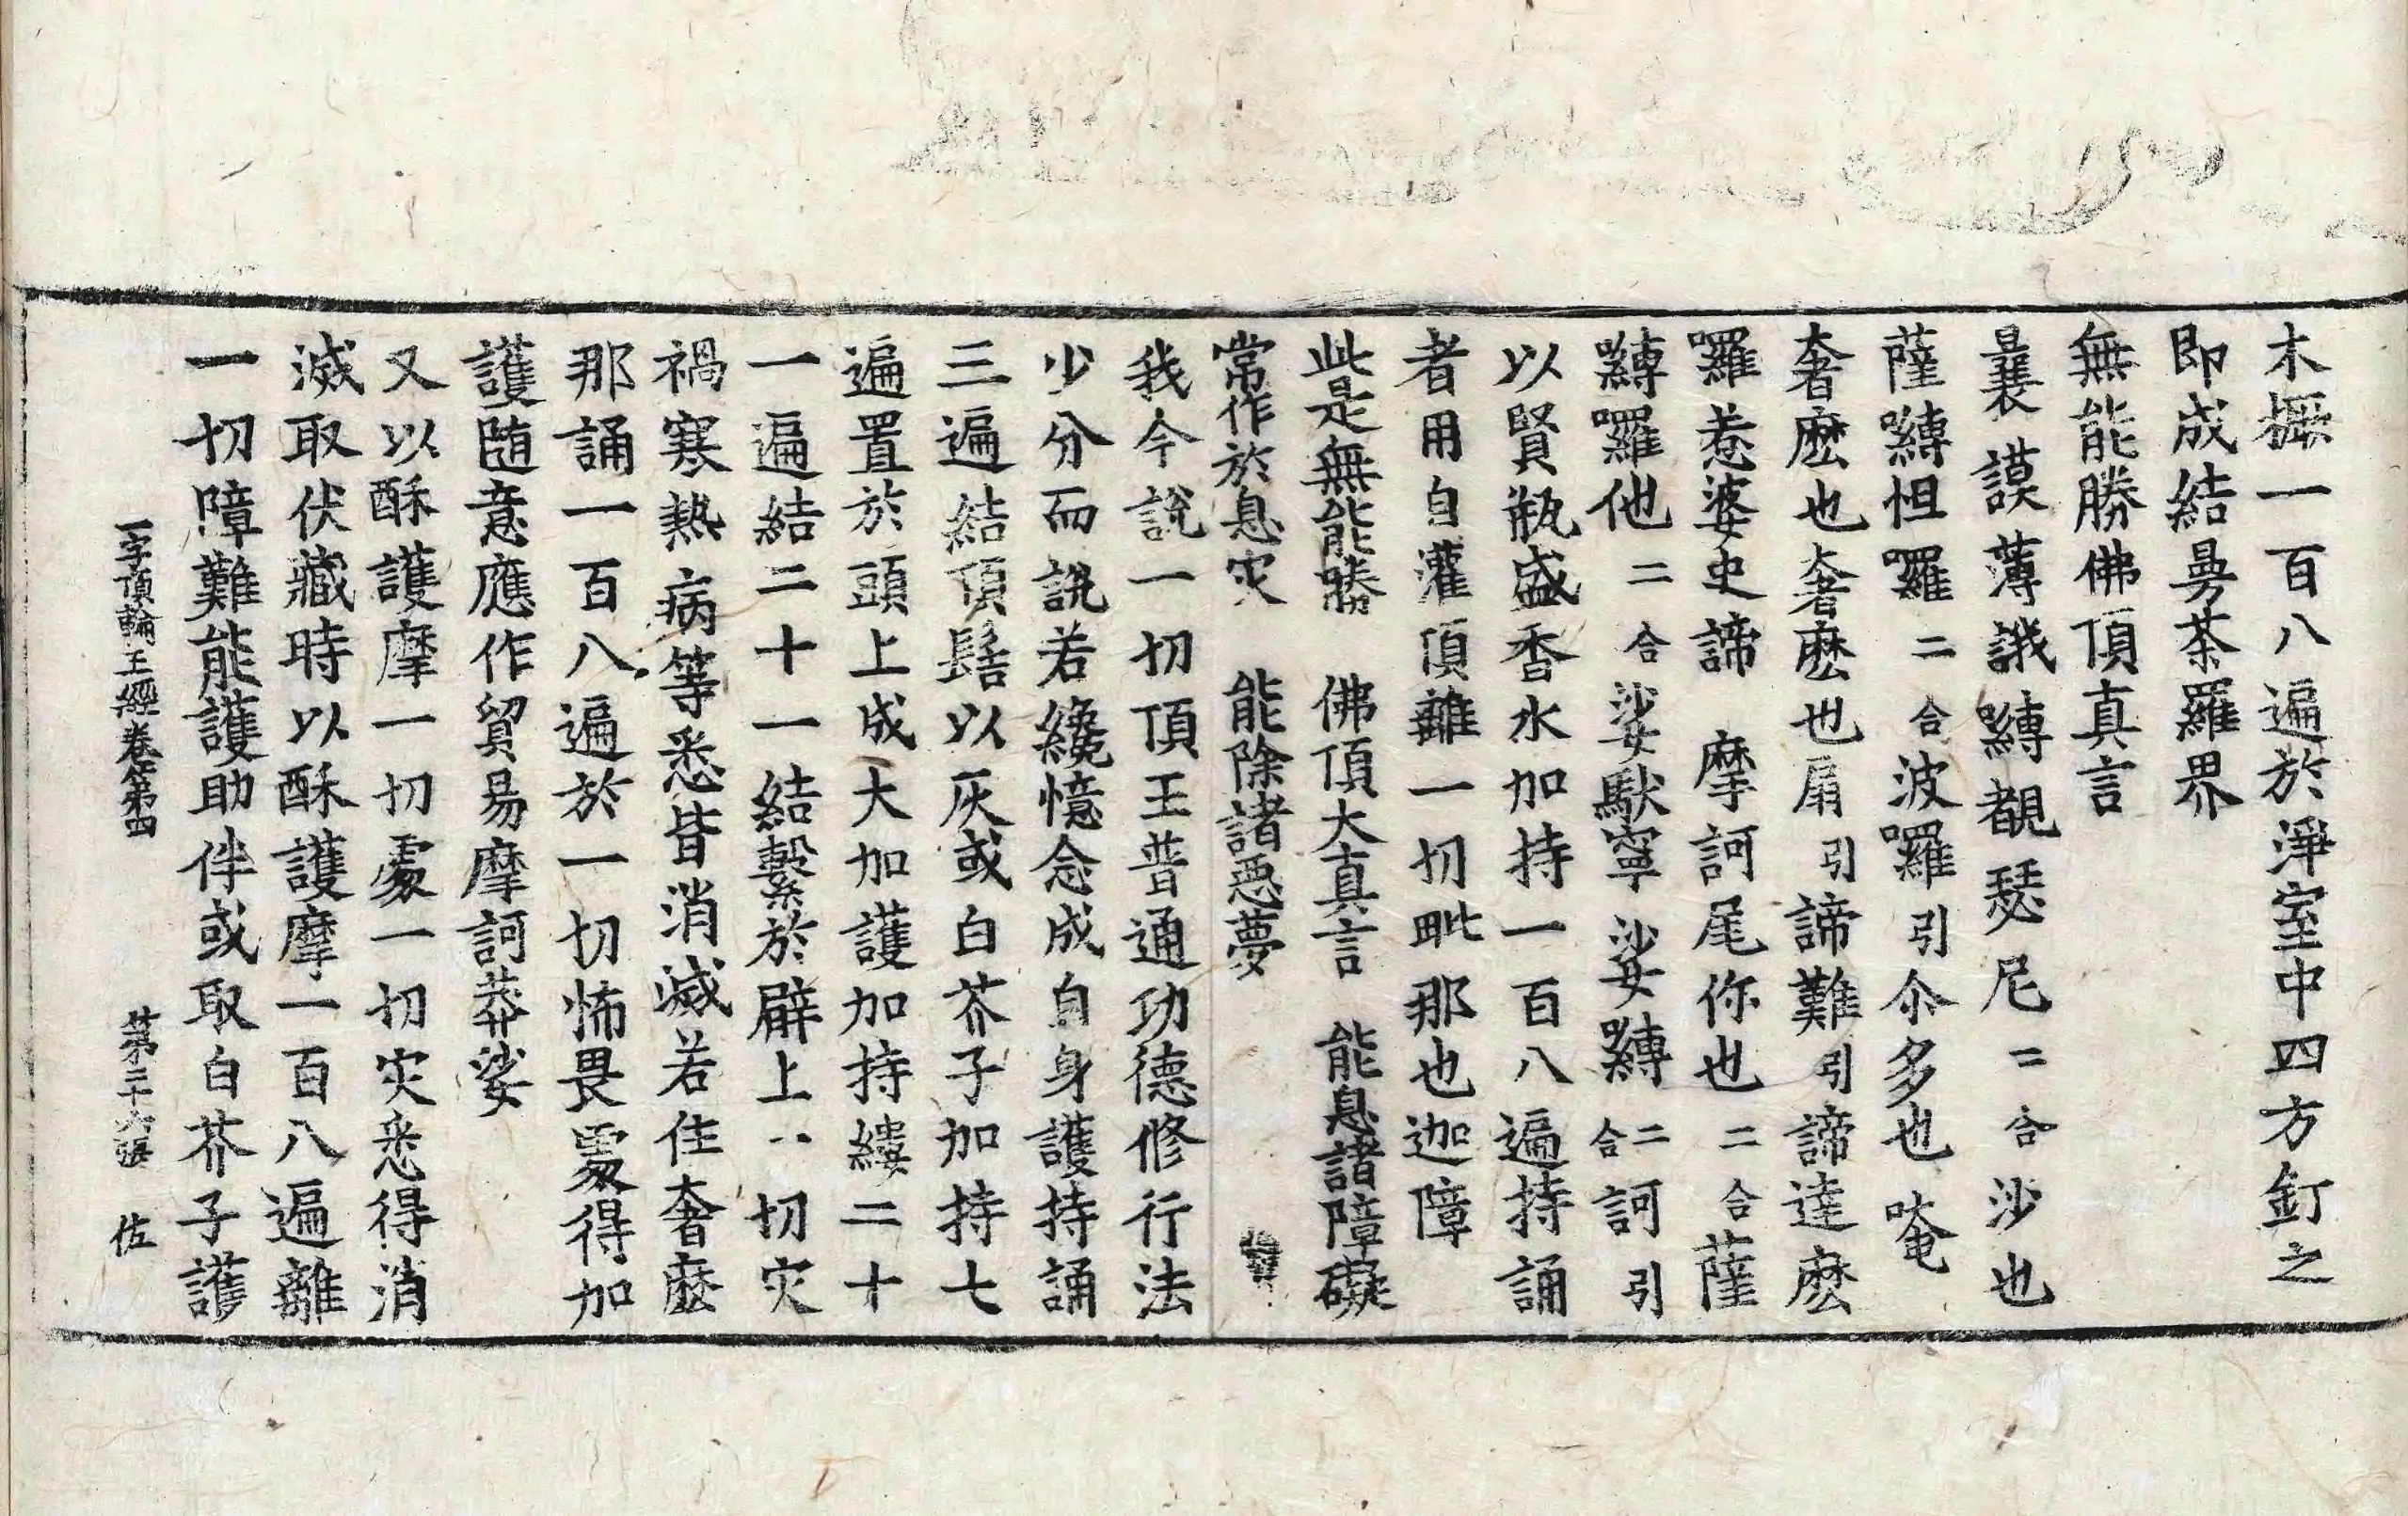 木橛一百八遍於淨室中四方釘之
即成結曼茶羅界
無能勝佛頂真言
曩謨薄誐嚩覩瑟尼二合沙也
薩嚩怛羅二合波囉引尒多也唵
奢麽也奢麽也扇引諦難引諦達麽
囉惹婆史諦 摩訶尾你也二合薩
嚩囉他二合娑馱寧娑嚩二合訶引
以賢瓶盛香水加持一百八遍持誦
者用自灌頂離一切毗那也迦障
此是無能勝 佛頂大真言 能息諸障礙
常作於息灾 能除諸惡夢
我今說一切頂王普通功德修行法
少分而說若纔憶念成自身護持誦
三遍結頂髻以灰或白芥子加持七
遍置於頭上成大加護加持縷二十
一遍結二十一結繫於臂上一切灾
禍寒熱病等悉皆消滅若佳奢麽
那誦一百八遍於一切怖畏處得加
護随意應作貿易摩訶莽娑
又以酥護摩一切處一切灾悉得消
滅取伏藏時以酥護摩一百八遍離
一切障難能護助伴或取白芥子護
一字頂輪王經卷第四 第二十六張 佐